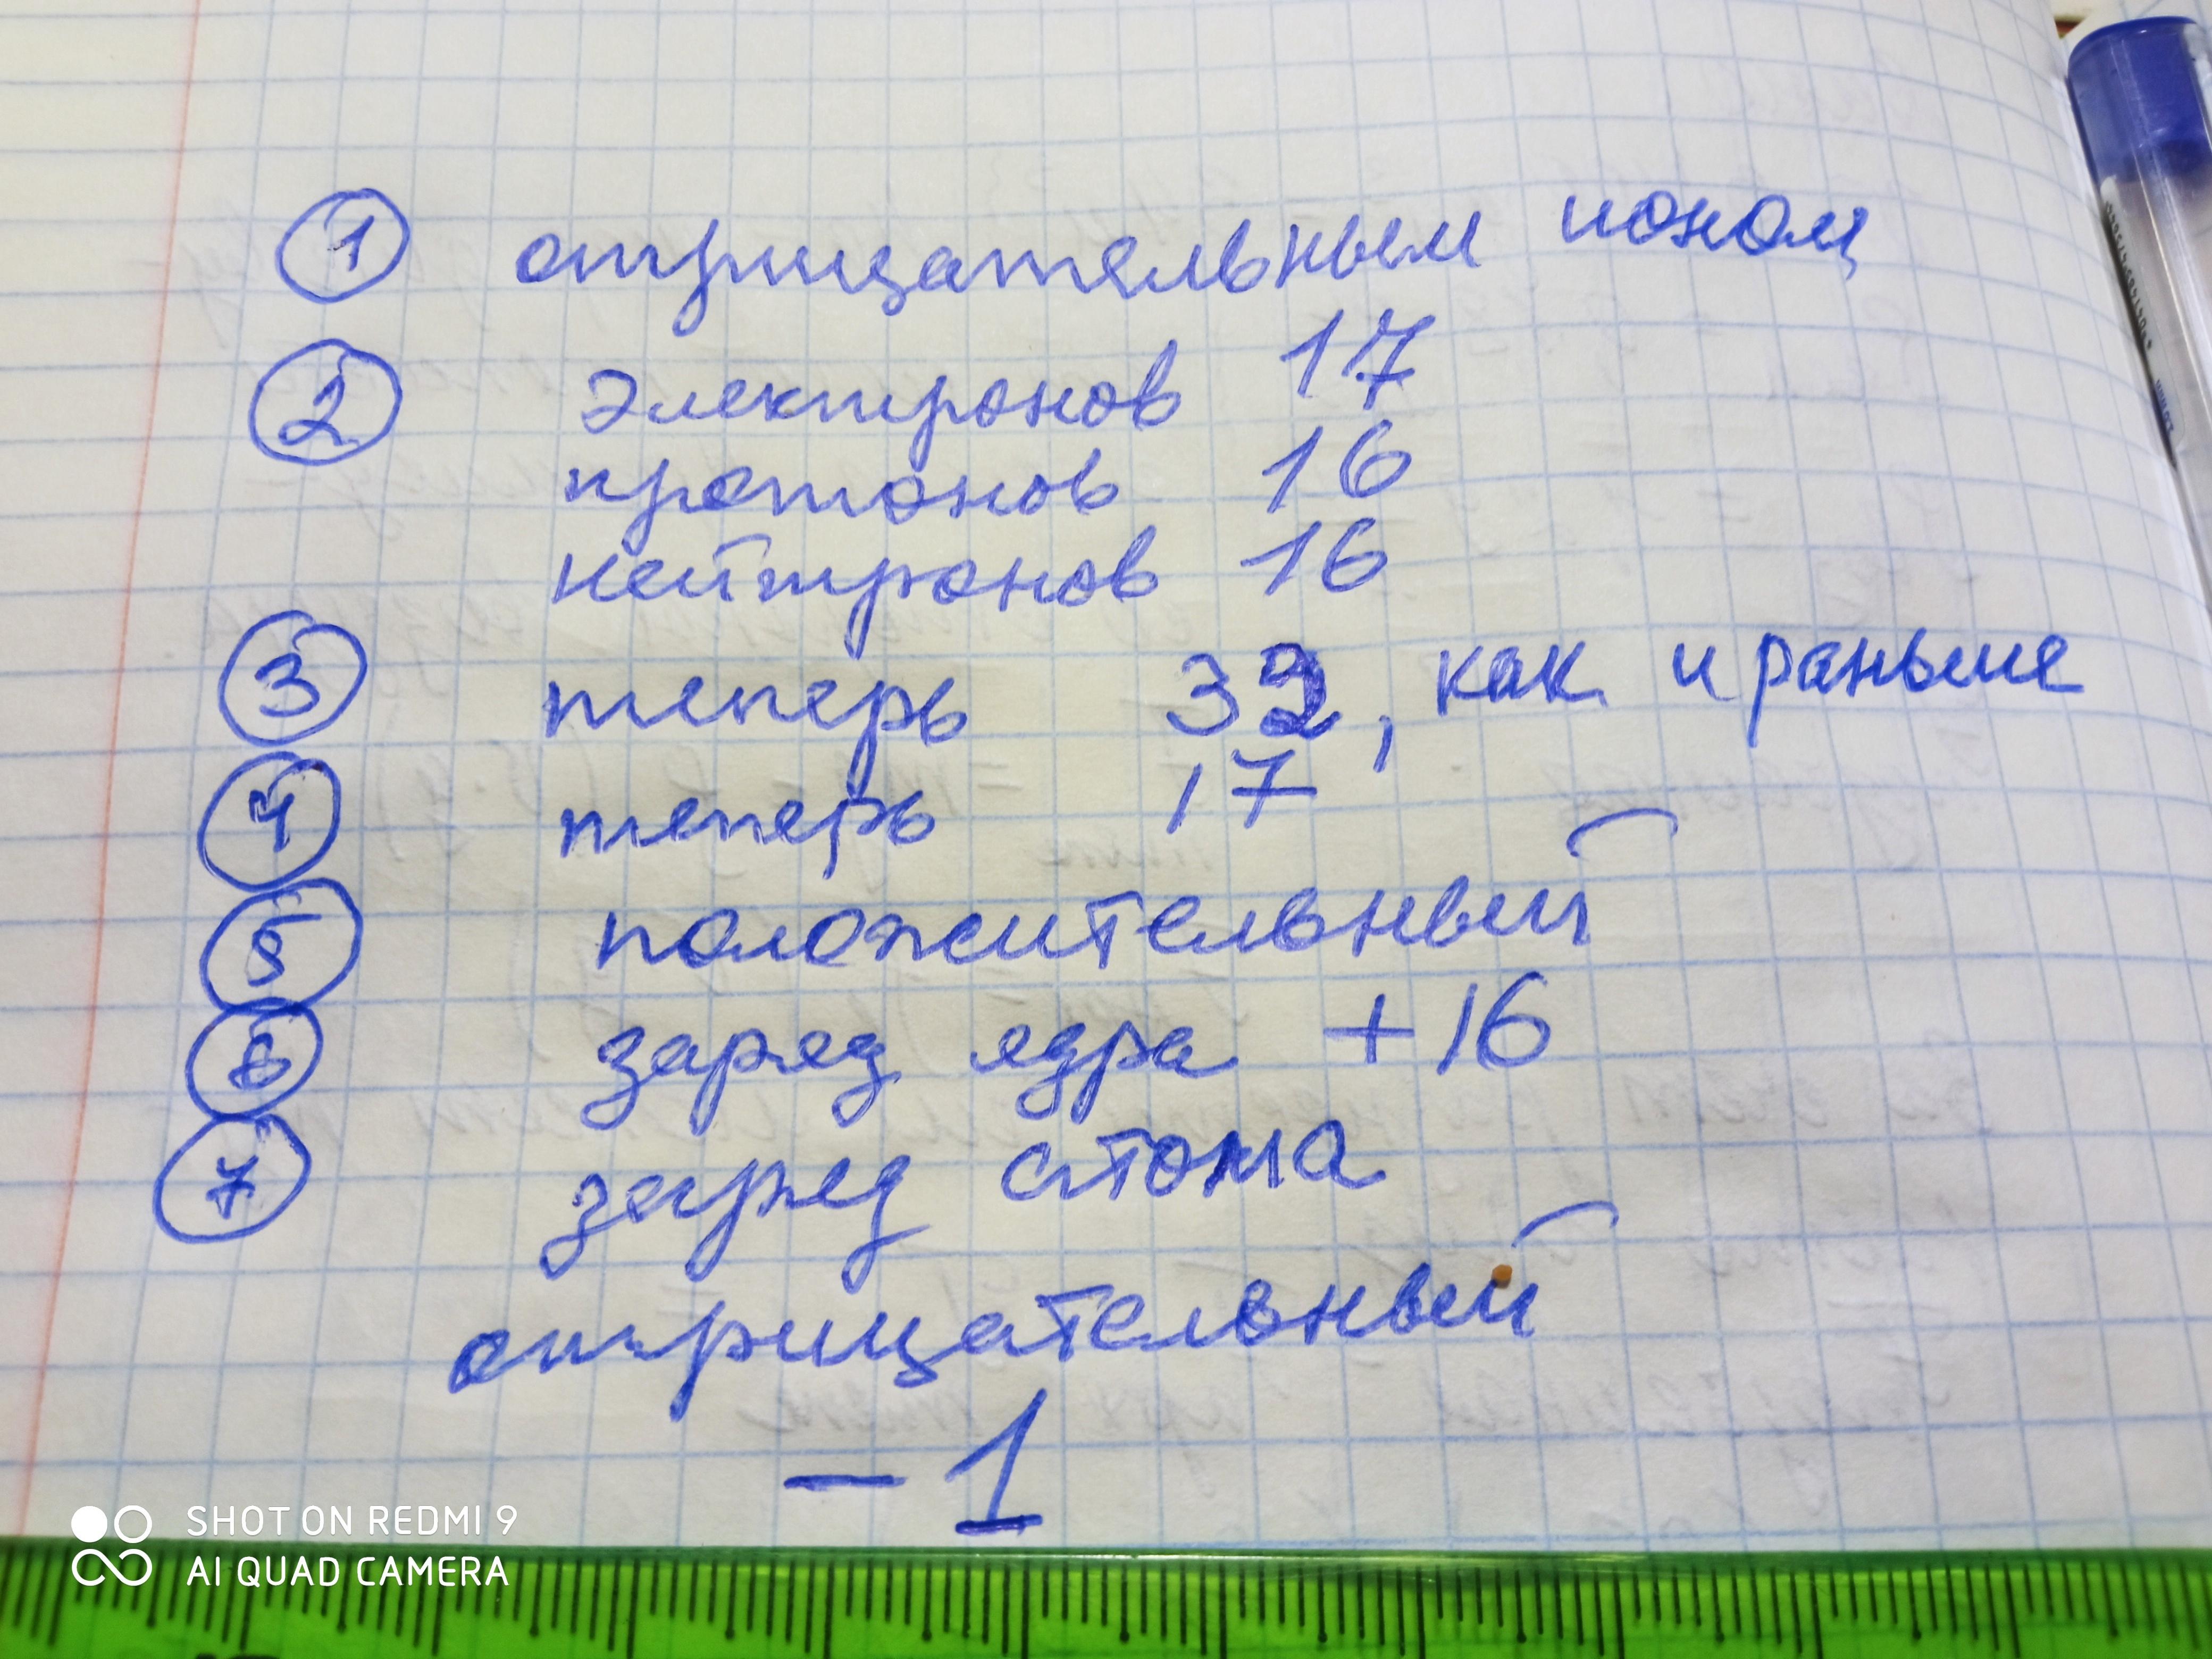 1 отрицательным ионом
2 электронов 17
протонов 16
нейтронов 16
3 теперь 32, как и раньше
4 теперь 17
5 положительный
6 заряд ядра +16
7 заряд атома
отрицательный
-1
SHOT ON REDMI 9
AI QUAD CAMERA